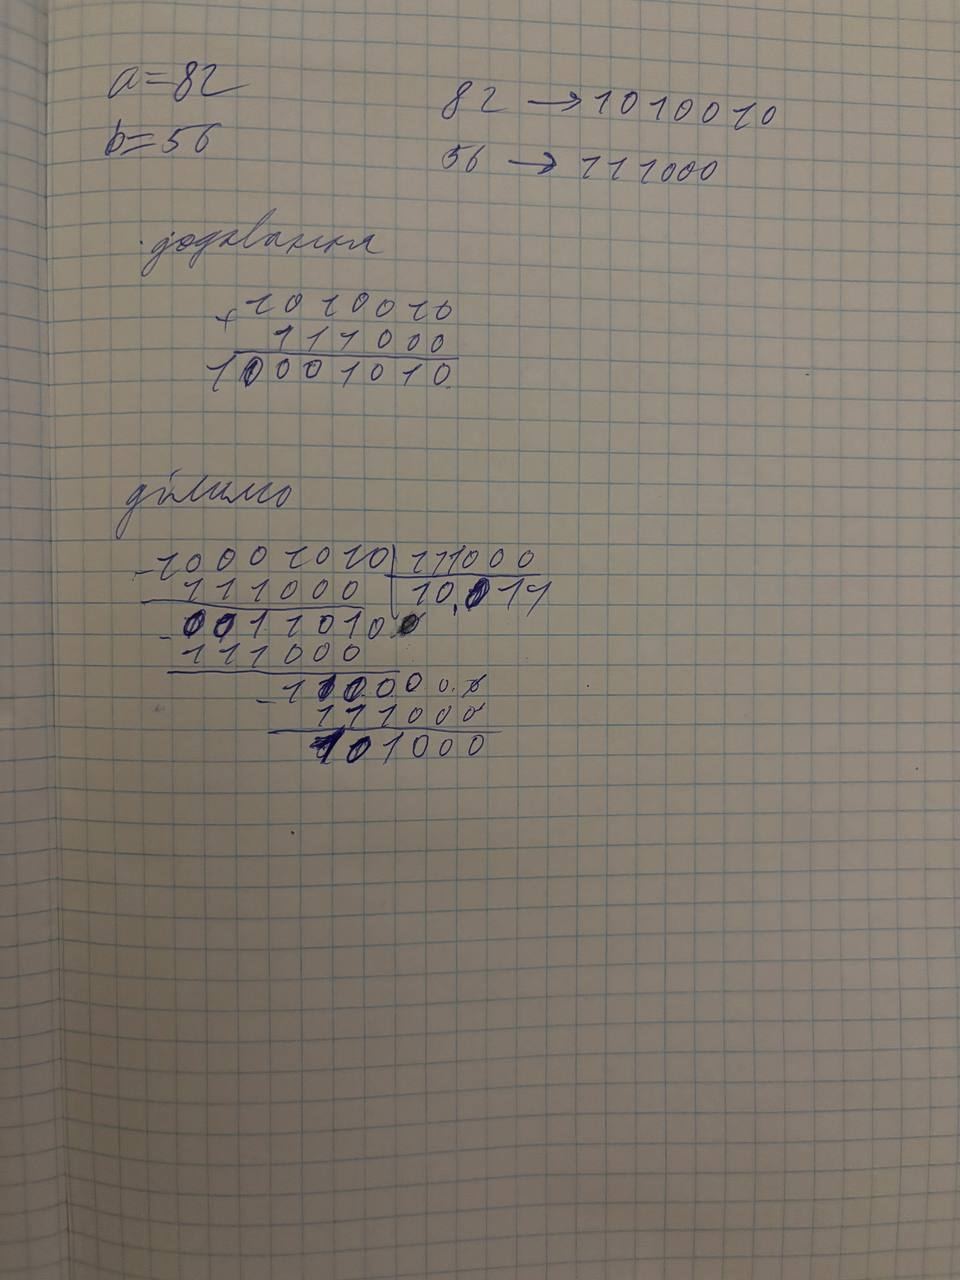 a=82
b=56
82 → 1010010
56 → 111000
додавання
+ 1010010
111000
10001010
ділимо
- 10001010 | 111000
111000 | 10,011
00110100
- 111000
- 1100000
111000
101000